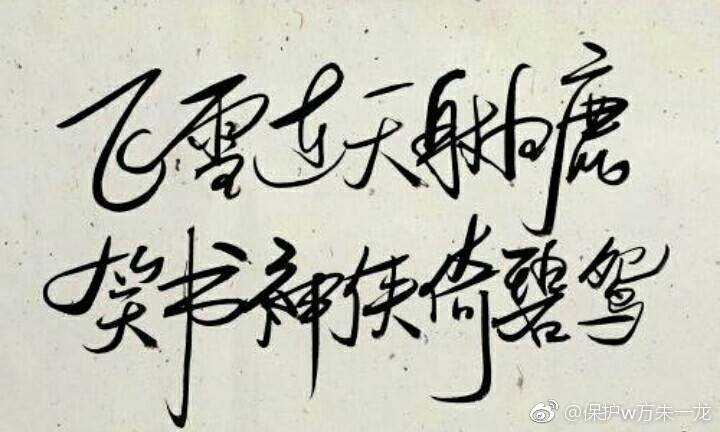 飞雪连天射白鹿
笑书神侠倚碧鸳
@保护w方朱一龙